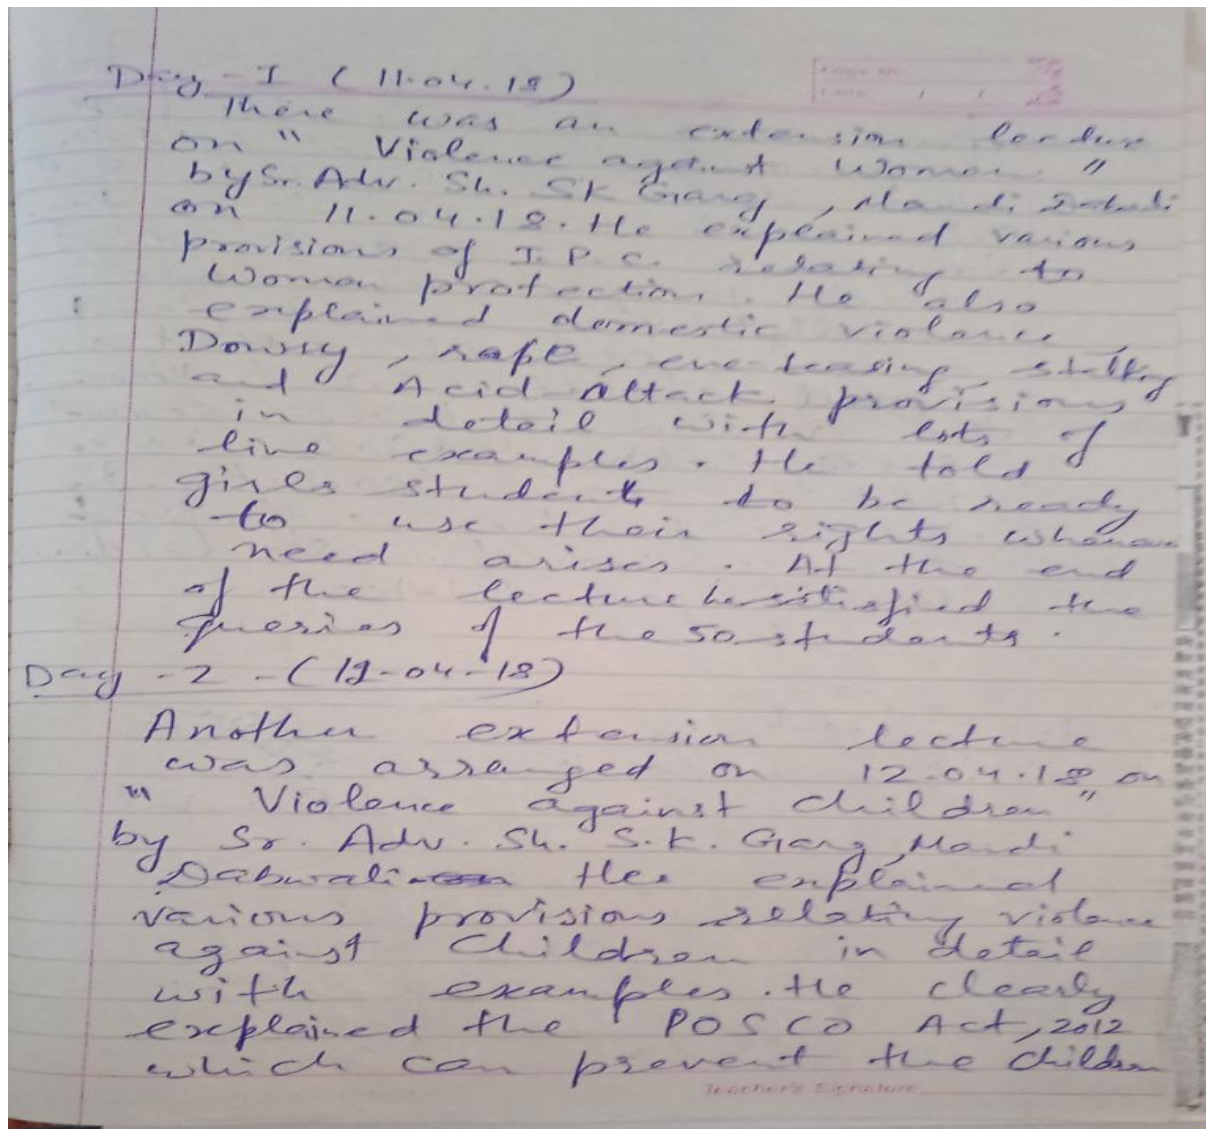 Day - I (11.04.18)
Page No.
Date / /
There was an extension lecture
on " Violence against Woman "
by Sr. Adv. Sh. SK Garg, Mandi Dabwali
on 11.04.18. He explained various
provisions of I.P.C. relating to
Woman protection. He also
explained domestic violence,
Dowry, rape, eve-teasing, stalking
and Acid Attack provisions
in detail with lots of
live examples. He told
girls students to be ready
to use their rights whenever
need arises. At the end
of the lecture he satisfied the
queries of the 50 students.
Day - 2 - (12-04-18)
Another extension lecture
was arranged on 12.04.18 on
" Violence against Children "
by Sr. Adv. Sh. S.K. Garg, Mandi
Dabwali. He explained
various provisions relating violence
against Children in detail
with examples. He clearly
explained the POSCO Act, 2012
which can prevent the children
Teacher's Signature